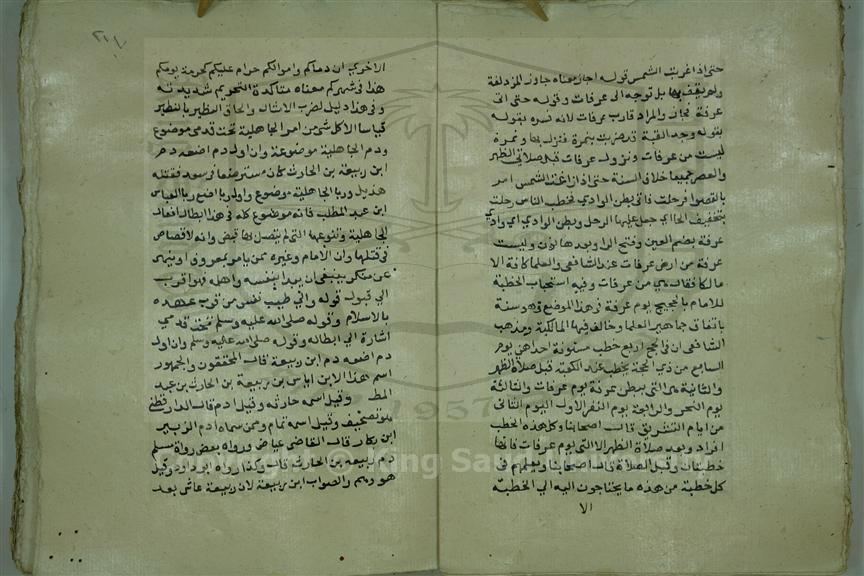 حتى اذا غربت الشمس قوله اجاز معناه جاوز المزدلفة
ولم يقف بها بل توجه الى عرفات وقوله حتى اتى
عرفة فمجاز والمراد قارب عرفات لانه فسره بقوله
بقوله وجد القبة قد ضربت بنمرة فنزل بها ونمرة
ليست من عرفات ونزول عرفات قبل صلاتي الظهر
والعصر جميعا خلاف السنة حتى اذا زاغت الشمس امر
بالقصوا فرحلت فاتى بطن الوادي فخطب الناس رحلت
بتخفيف الحا اي جعل عليها الرحل وبطن الوادي اي وادي
عرفة بضم العين وفتح الرا وبعدها نون وليست
عرفة من ارض عرفات عند الشافعي والعلما كافة الا
مالكا فقال هي من عرفات وفيه استحباب الخطبة
للامام بالحجيج يوم عرفة في هذا الموضع وهو سنة
باتفاق جماهير العلما وخالف فيها المالكية ومذهب
الشافعي ان في الحج اربع خطب مسنونة احداهن يوم
السابع من ذي الحجة يخطب عند الكعبة قبل صلاة الظهر
والثانية هي التي ببطن عرفة يوم عرفات والثالثة
يوم النحر والرابعة يوم النفر الاول اليوم الثاني
من ايام التشريق قال اصحابنا وكل هذه الخطب
افراد وبعد صلاة الظهر الا التي يوم عرفات فانها
خطبتان وقبل الصلاة قال اصحابنا ويعلمهم في
كل خطبة من هذه ما يحتاجون اليه الى الخطبة
الا
الاخرى ان دماكم واموالكم حرام عليكم كحرمة يومكم
هذا في شهركم معناه متاكدة التحريم شديدته
وفي هذا دليل لضرب الامثال والحاق النظير بالنظير
قياسا الا كل شي من امر الجاهلية تحت قدمي موضوع
ودم الجاهلية موضوعة وان اول دم اضعه دم
ابن ربيعة بن الحارث كان مسترضعا في بني سعد فقتله
هذيل وربا الجاهلية موضوع واول ربا اضع ربا العباس
ابن عبد المطلب فانه موضوع كله في هذا ابطال افعال
الجاهلية وبيوعها التي لم يتصل بها قبض وانه لا قصاص
في قتلها وان الامام وغيره ممن يامر بمعروف او ينهى
عن منكر ينبغي ان يبدا بنفسه واهله فهو اقرب
الى قبول قوله والى طيب نفس من قرب عهده
بالاسلام وقوله صلى الله عليه وسلم تحت قدمي
اشارة الى ابطاله وقوله صلى الله عليه وسلم وان اول
دم اضعه دم ابن ربيعة قال المحققون والجمهور
اسم هذا الابن اياس بن ربيعة بن الحارث بن عبد
المطلب وقيل اسمه حارثه وقيل ادم قال الدارقطني
هو تصحيف وقيل اسمه تمام وممن سماه ادم الزبير
ابن بكار قال القاضي عياض ورواه بعض رواة مسلم
دم ربيعة بن الحارث قال وكذا رواه ابو داود وقيل
هو وهم والصواب ابن ربيعة لان ربيعة عاش بعد
1957
King Saud